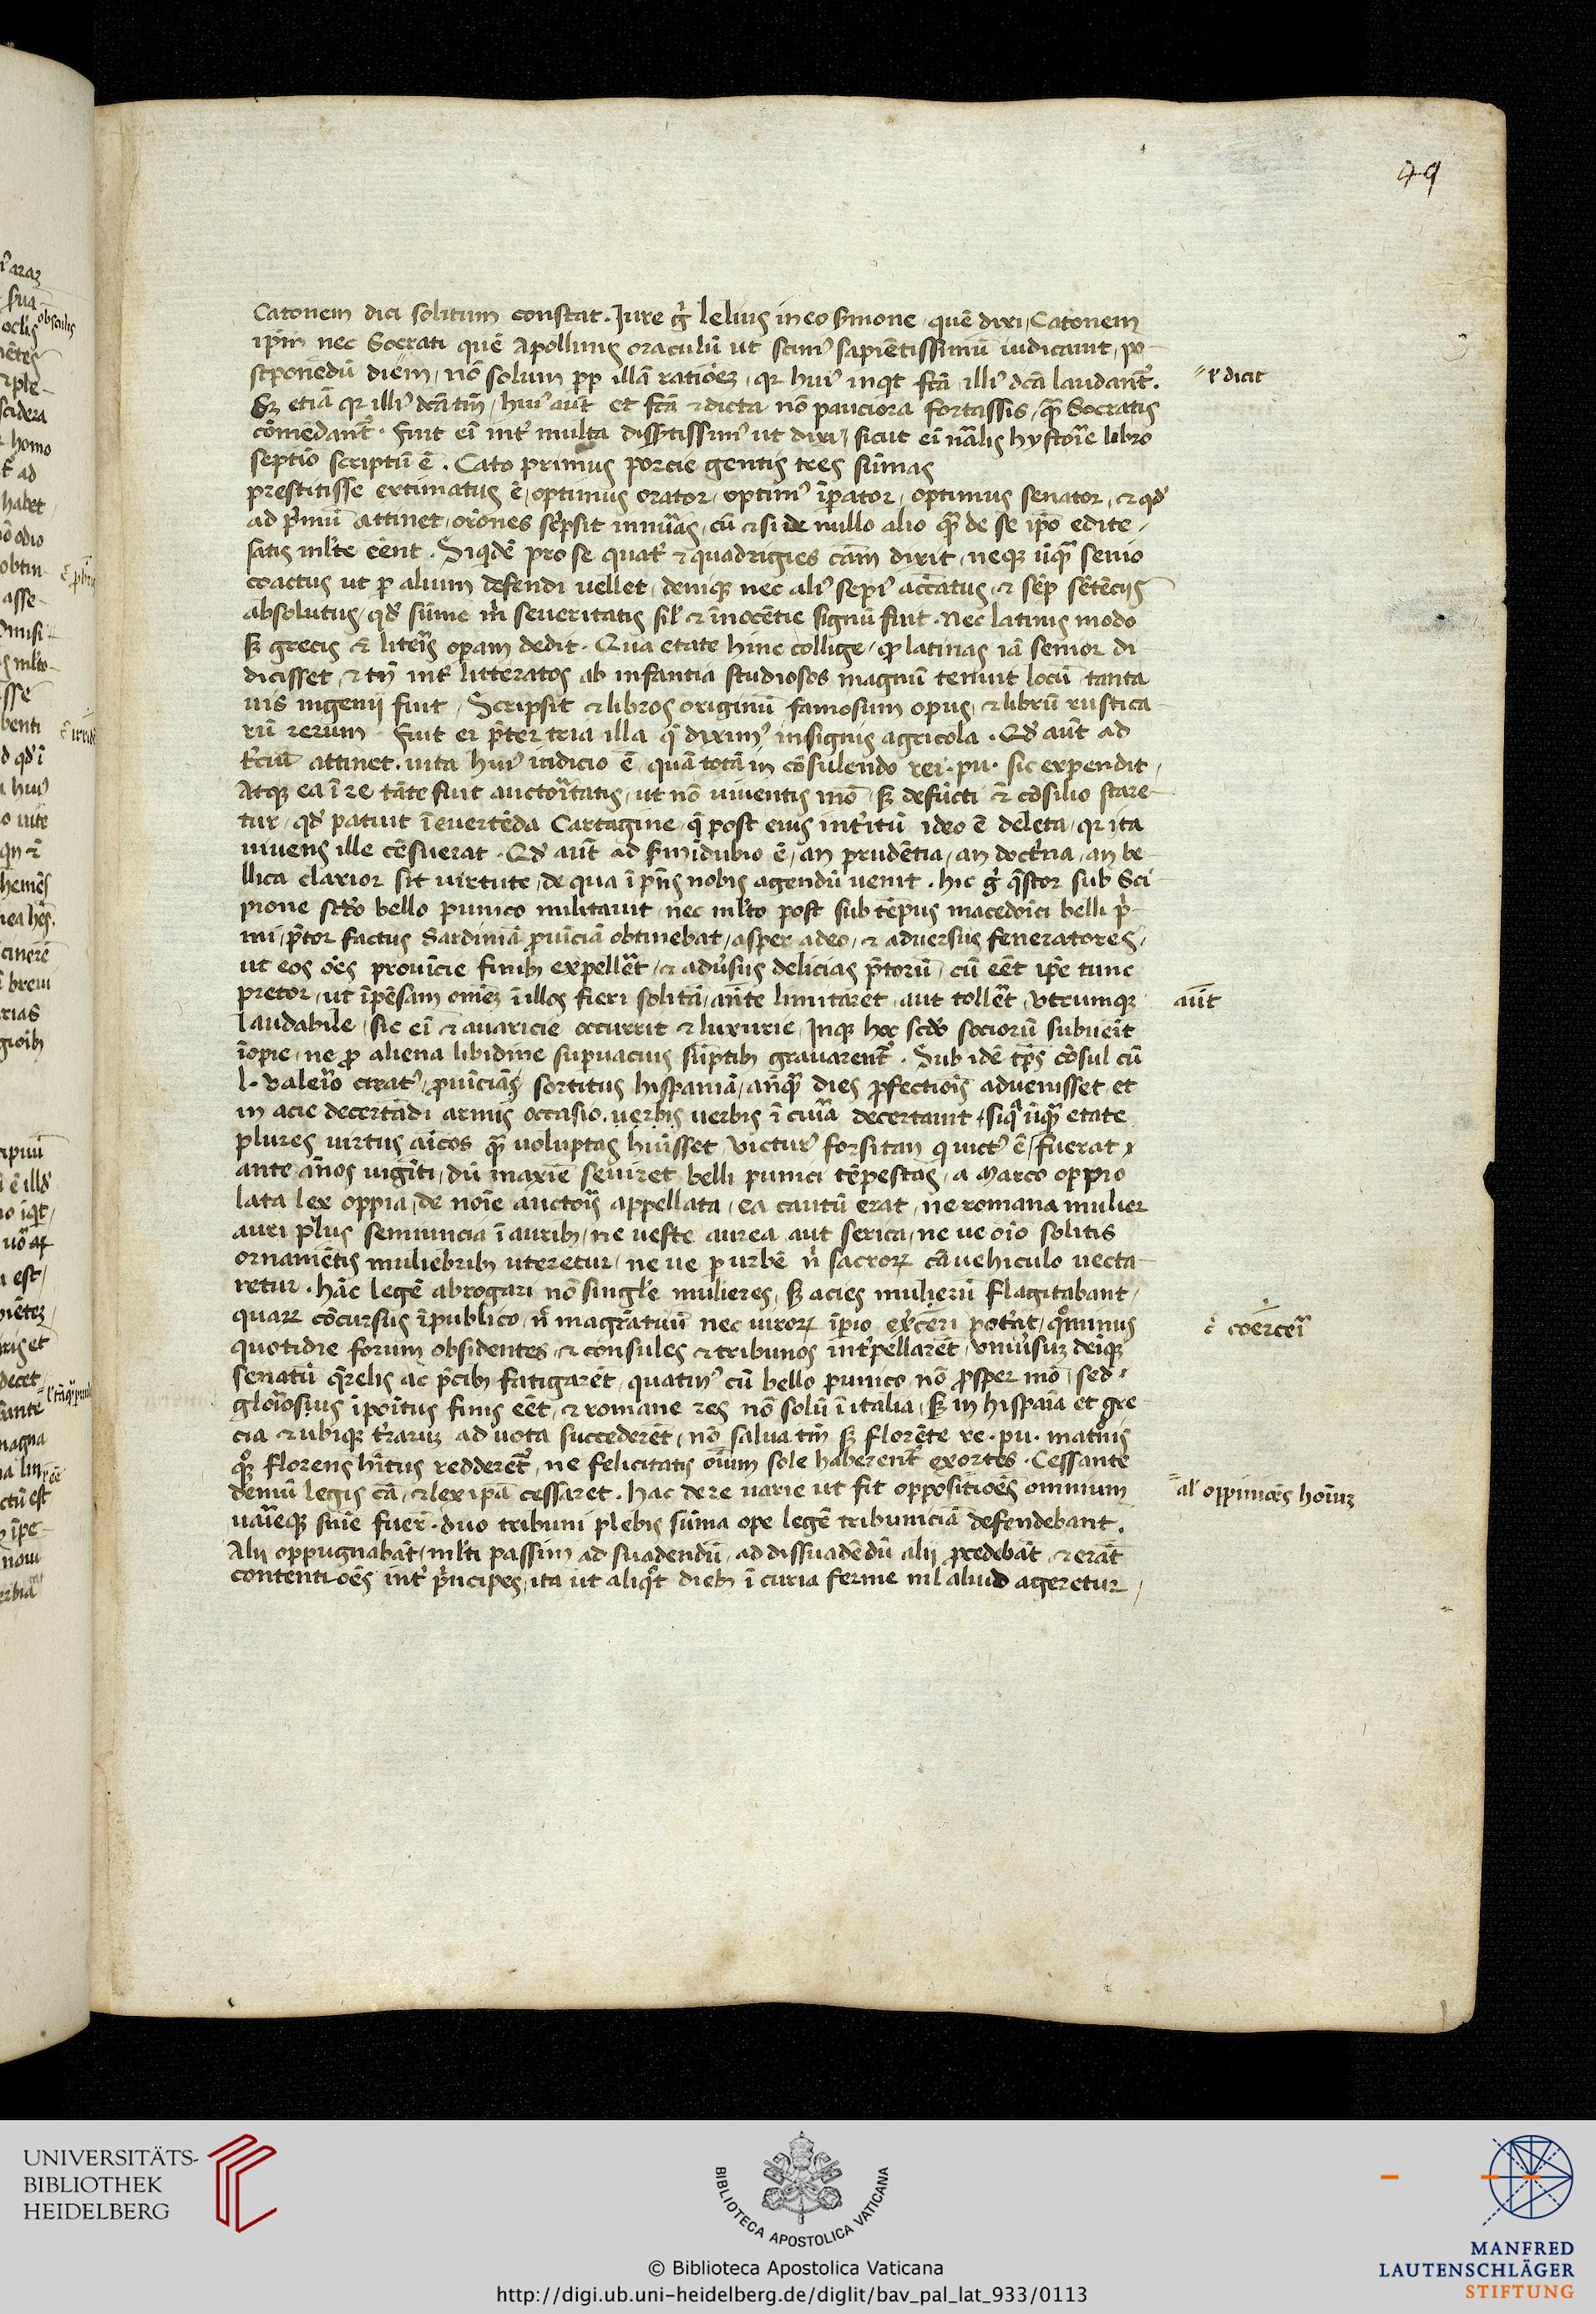 49
Catonem dici solitum constat. Jure g̊ lelius in eo s̓mone, quē dixi, Catonem
ip̄m nec Socrati quē Apollinis oraculū ut scim᷒ sapiētissimū iudicauit, po-
stponēdū diēm, nō solum pp̄ illā ratiōez, qr hui᷒ inqt fcā, illi᷒ dcā laudant᷑.
Sꝫ etiā qr illi᷒ dcā tm̄, hui᷒ aut̄ et fcā ⁊ dicta nō pauciora fortassis, qͣ Socratis
cōmēdant᷑. Fuit ei᷒ int᷑ multa
septīo scriptū ē. Cato primus porcie gentis tres sūmas
prestitisse extimatus ē, optimus orator, optim᷒ īpator, optimus senator, ⁊ qd̓
ad p̓mū attinet, orōnes sc̓psit innūas, cū ⁊ si de nullo alio qͣ de se ip̄o edite,
satis ml̓te eēnt. Siqdē pro se quat᷑ ⁊ quadrigies cām dixit, neqꝫ ūqͣ senio
coactus ut p alium defendi uellet, deniqꝫ nec ali᷒ sepi᷒ accatus, ⁊ sēp sētēcijs
absolutus, qd̓ sūme m̓ seueritatis sil̓ ⁊ īnocētie signū fuit. Nec latinis modo
sꝫ grecis ⁊ līteris opam dedit. Qua etate hinc collige, qp latinas iā senior di
dicisset, ⁊ tn̄ int᷑ litteratos ab infantia studiosos magnū tenuit locū, tanta
uis ingenij fuit. Scripsit ⁊ libros originū famosum opus, ⁊ librū rustica-
rū rerum. Fuit ei p̄ter tria illa q̄ dixim᷒ insignis agricola. Qd̓ aut̄ ad
t᷑ciū attinet. uita hui᷒ iudicio ē, quā totā in cōsulendo rei. pu. sic expendit,
Atqꝫ ea ī re tāte fuit auctoritatis, ut nō uiuentis mō sꝫ defūcti ⁊ cōsilio stare-
tur, qd̓ patuit ī euertēda Cartagine, q̄ post eius int᷑itū ideo ē deleta, qr ita
uiuens ille cēsuerat. Qd̓ aut̄ ad indubio ē, an prudētia, an doct᷑ina, an be-
llica clarior sit uirtute, de qua ī pn̄s nobis agendū uenit. hic g̊ q̄stor sub Sci
pione scd̓o bello punico militauit, nec ml̓to post sub tēpus macedōici belli p̓-
mi, p̄tor factus Sardiniā prouīciā obtinebat, asper adeo, ⁊ aduersus feneratores,
ut eos oēs prouīcie finibꝫ expellet᷑, ⁊ adūsus delicias p̄torū, cū eēt ip̄e tunc
pretor, ut īpēsam omēz ī illos fieri solitā, ante limitaret, aut tollet᷑, Vtrumqꝫ
laudabile, sic ei᷒ ⁊ auaricie occurrit ⁊ luxurie, Inqꝫ hoc sociorū subuēit
īopie, ne p aliena libidine supuacuis sūptibꝫ grauarent᷑. Sub idē tp̄s cōsul cū
l. valerio creat᷒, prouīcias sortitus hispaniā, anqͣ dies pfectiōis aduenisset, et
in acie decertādi armis occasio. uerbis uerbis ī curia decertauit, siq̄ ūqͣ etate
plures uirtus aīcos qͣ uoluptas hūisset, victur᷒ forsitan q uict᷒ ē, fuerat
ante ānos uigīti, dū maxīe seuiret belli punici tēpestas, a Marco oppio
lata lex oppia, de noīe auctoris appellata, ea cautū erat, ne romana mulier
auri plus semuncia ī auribꝫ, ne ueste aurea aut serica, ne ue oīo solitis
ornamētis muliebribꝫ uteretur, ne ue p urbē n̓ sacroꝝ cā uehiculo uecta-
retur. Hāc legē abrogari nō singl̓e mulieres, sꝫ acies mulierū flagitabant,
quaꝝ cōcursus ī publico, n̓ magr̄atuū nec uiroꝝ īpio, poterat, qͦminus
quotidie forum obsidentes, ⁊ consules ⁊ tribunos int᷑pellarēt, vniūsuꝫ deīqꝫ
senatū q̄relis ac p̄cibꝫ fatigarēt, quatin᷒ cū bello punico nō psper mō, sed
gloriosius īpoitus finis eēt, ⁊ romane res nō solū ī italia, sꝫ in hispaīa et gre
cia ⁊ ubiqꝫ t᷑raruꝫ ad uota succederēt, nō salua tm̄ sꝫ florēte re. pu. mat᷑nis
qͦꝫ florens hītus redderet᷑, ne felicitatis oīum sole haberent᷑ exortes. Cessante
demū legis cā, ⁊ lex ip̄a cessaret. Hac de re uarie ut fit oppositiōes omnium
uarieqꝫ sn̄ie fuer̄. duo tribuni plebis sūma ope legē tribuniciā defendebant.
Alij oppugnabāt, ml̓ti passim ad suadendū, ad dissuadēdū alij pcedebāt, ⁊ erāt
contentiōes int᷑ p̓ncipes, ita ut aliqͦt diebꝫ ī curia ferme nil aliud ageretur,
dicit
aut̄
coerceri
al̓ oppiniōes hoīuꝫ
UNIVERSITÄTS-
BIBLIOTHEK
HEIDELBERG
BIBLIOTECA APOSTOLICA VATICANA
© Biblioteca Apostolica Vaticana
http://digi.ub.uni-heidelberg.de/diglit/bav_pal_lat_933/0113
MANFRED
LAUTENSCHLÄGER
STIFTUNG